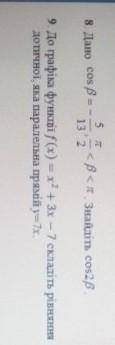 8. Дано cos β = −5/13, π/2 < β < π. Знайдіть cos2β.
9. До графіка функції f(x) = x² + 3x − 7 складіть рівняння
дотичної, яка паралельна прямій y=7x.